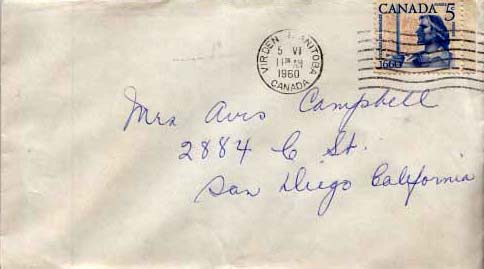 CANADA 5
1660
VIRDEN MANITOBA
5 VI
11 AM
1960
CANADA
Mrs Avis Campbell
2884 C St.
San Diego California